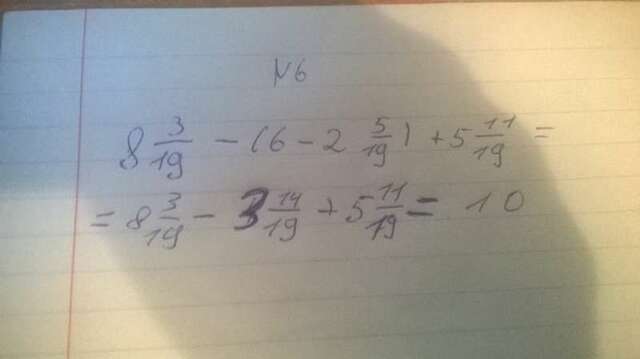 №6
8 3/19 - (6 - 2 5/19) + 5 11/19 =
= 8 3/19 - 3 14/19 + 5 11/19 = 10